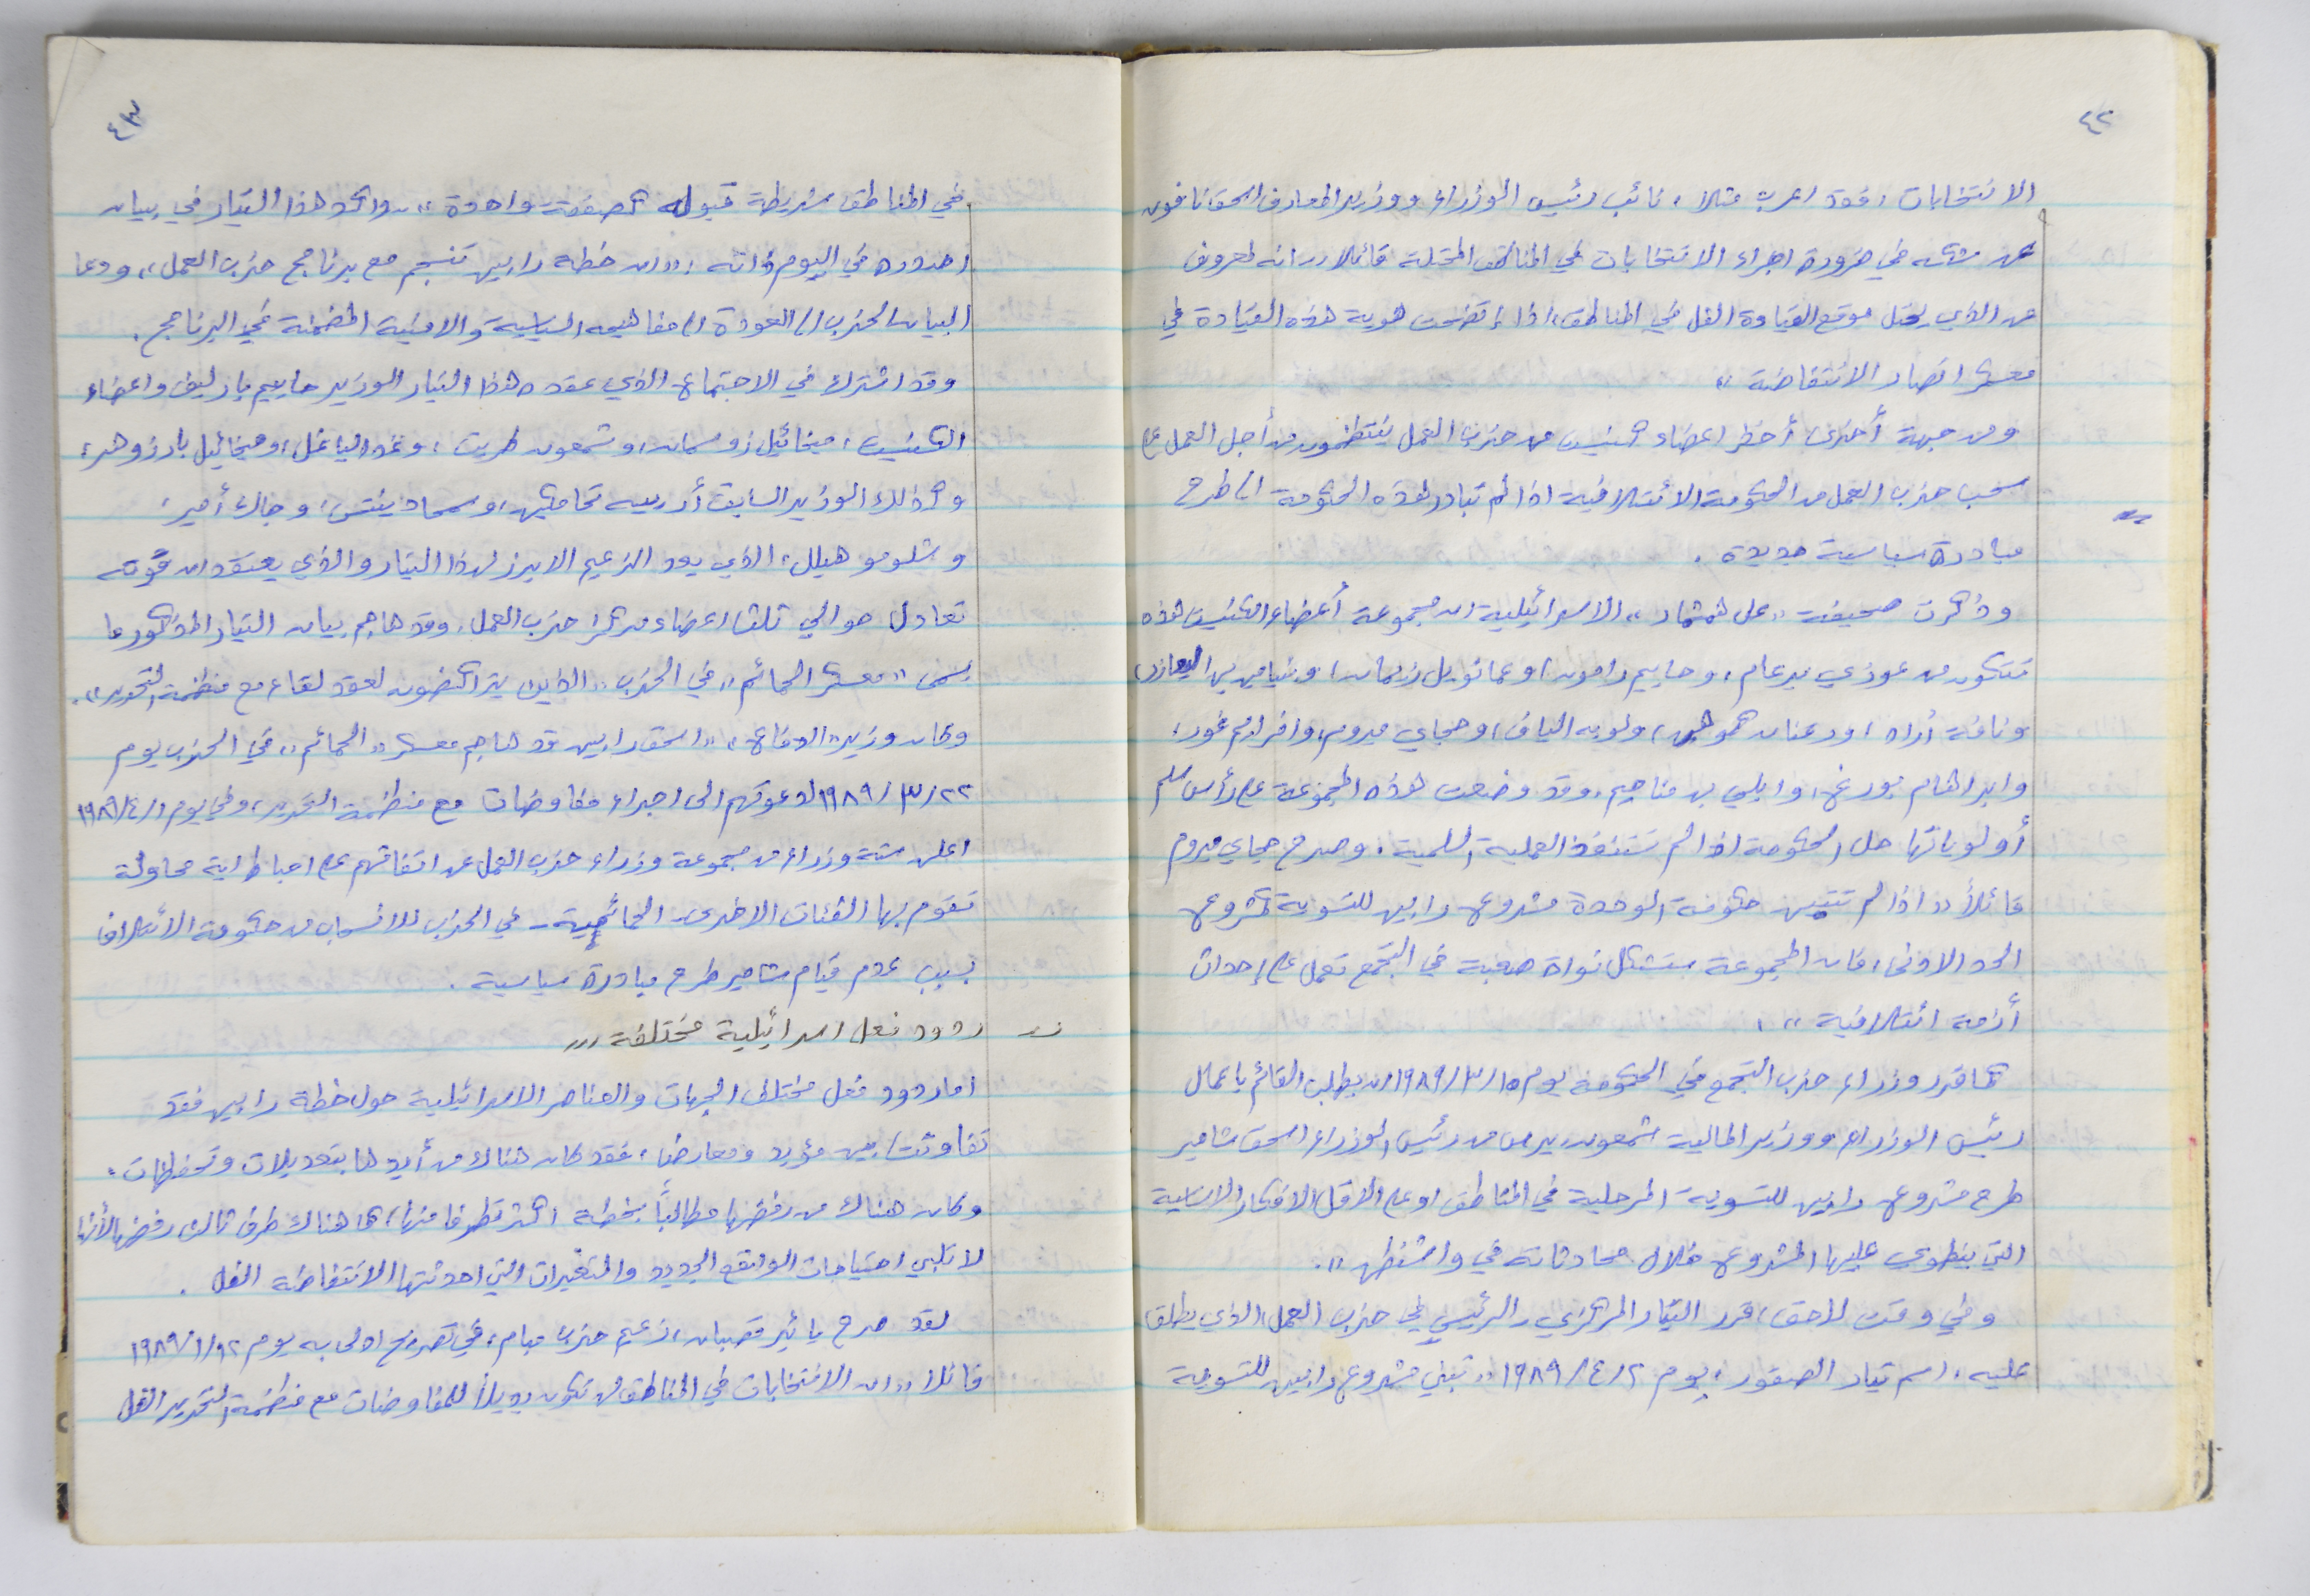 ٤٢
الانتخابات، فقد اعرب مثلا، نائب رئيس الوزراء ووزير المعارف اسحق نافون
عن شكه في ضرورة اجراء الانتخابات في المناطق المحتلة قائلا "انه لمعروف
من الذي يحتل موقع القيادة الفعلي في المناطق، اذا اتضحت هوية هذه القيادة في
معسكر انصار الانتفاضة"
ومن جهة أخرى أخذ اعضاء كنيست من حزب العمل ينتظمون من أجل العمل على
سحب حزب العمل من الحكومة الائتلافية اذا لم تبادر هذه الحكومة الى طرح
مبادرة سياسية جديدة.
وذكرت صحيفة "عل همشمار" الاسرائيلية ان مجموعة أعضاء الكنيست هذه
تتكون من عوزي برعام، وحاييم رامون، وعمانوئيل زيسمان، وبنيامين بن اليعازر،
ونافة أراد، ورعنان كوهين، ولوبه الياف، وحجاي ميروم، وافرايم غور،
وابراهام بورغ، وايلي بن مناحيم، وقد وضعت هذه المجموعة على رأس سلم
أولوياتها حل الحكومة اذا لم تستنفذ العملية السلمية. وصرح حجاي ميروم
قائلاً "اذا لم تتبن حكومة الوحدة مشروع رابين للتسوية كمشروع
الحد الادنى، فان المجموعة ستشكل نواة صعبة في التجمع تعمل على إحداث
أزمة ائتلافية".
كما قرر وزراء حزب التجمع في الحكومة يوم ١٥/٣/١٩٨٩ ان يطلب القائم باعمال
رئيس الوزراء ووزير المالية شمعون بيرس من رئيس الوزراء اسحق شامير
طرح مشروع رابين للتسوية المرحلية في المناطق او على الاقل الافكار الاساسية
التي ينطوي عليها المشروع خلال محادثاته في واشنطن".
وفي وقت لاحق، قرر التيار المركزي الرئيسي في حزب العمل، الذي يطلق
عليه، اسم تيار الصقور، يوم ٢/٤/١٩٨٩ "تبني مشروع رابين للتسوية
٤٣
في المناطق شريطة قبوله كصفقة واحدة"، واكد هذا التيار في بيان
اصدره في اليوم ذاته، "ان خطة رابين تنسجم مع برنامج حزب العمل"، ودعا
البيان الحزب الى العودة الى مفاهيمه السياسية والامنية المضمنة في البرنامج.
وقد اشترك في الاجتماع الذي عقده هذا التيار الوزير حاييم بارليف واعضاء
الكنيست، ميخائيل زوسمان، وشمعون طريت، وميخائيل بار زوهر،
وكذلك الوزير السابق أدريس تحامكين، وسمحا دينتس، وجاك أمير،
وشلومو هيلل، الذي يعد الزعيم الابرز لهذا التيار والذي يعتقد ان قوته
تعادل حوالي ثلث اعضاء مركز حزب العمل. وقد هاجم بيان التيار المذكور ما
يسمى "معسكر الحمائم" في الحزب "الذين يتراكضون لعقد لقاء مع منظمة التحرير".
وكان وزير "الدفاع"، "اسحق رابين قد هاجم معسكر "الحمائم" في الحزب يوم
٢٢/٣/١٩٨٩ لدعوتهم الى اجراء مفاوضات مع منظمة التحرير، وفي يوم ١/٤/١٩٨٩
اعلن ستة وزراء من مجموعة وزراء حزب العمل عن اتفاقهم على احباط اية محاولة
تقوم بها الفئات الاخرى - الحمائمية - في الحزب للانسحاب من حكومة الائتلاف
بسبب عدم قيام شامير طرح مبادرة سياسية.
ز- ردود فعل اسرائيلية مختلفة ...
اما ردود فعل مختلف الجهات والعناصر الاسرائيلية حول خطة رابين فقد
تفاوتت بين مؤيد ومعارض، فقد كان هناك من أيدها بتعديلات وتحفظات،
وكان هناك من رفضها مطالباً بخطة اكثر تطرفا منها، كما هناك طرف ثالث رفضها لأنها
لا تلبي احتياجات الواقع الجديد والتغيرات التي احدثتها الانتفاضة الفعل.
لقد صرح يائير تصبان، زعيم حزب مبام، في تصريح ادلى به يوم ١٢/١/١٩٨٩
قائلا "ان الانتخابات في المناطق لن تكون بديلاً للمفاوضات مع منظمة التحرير الفل